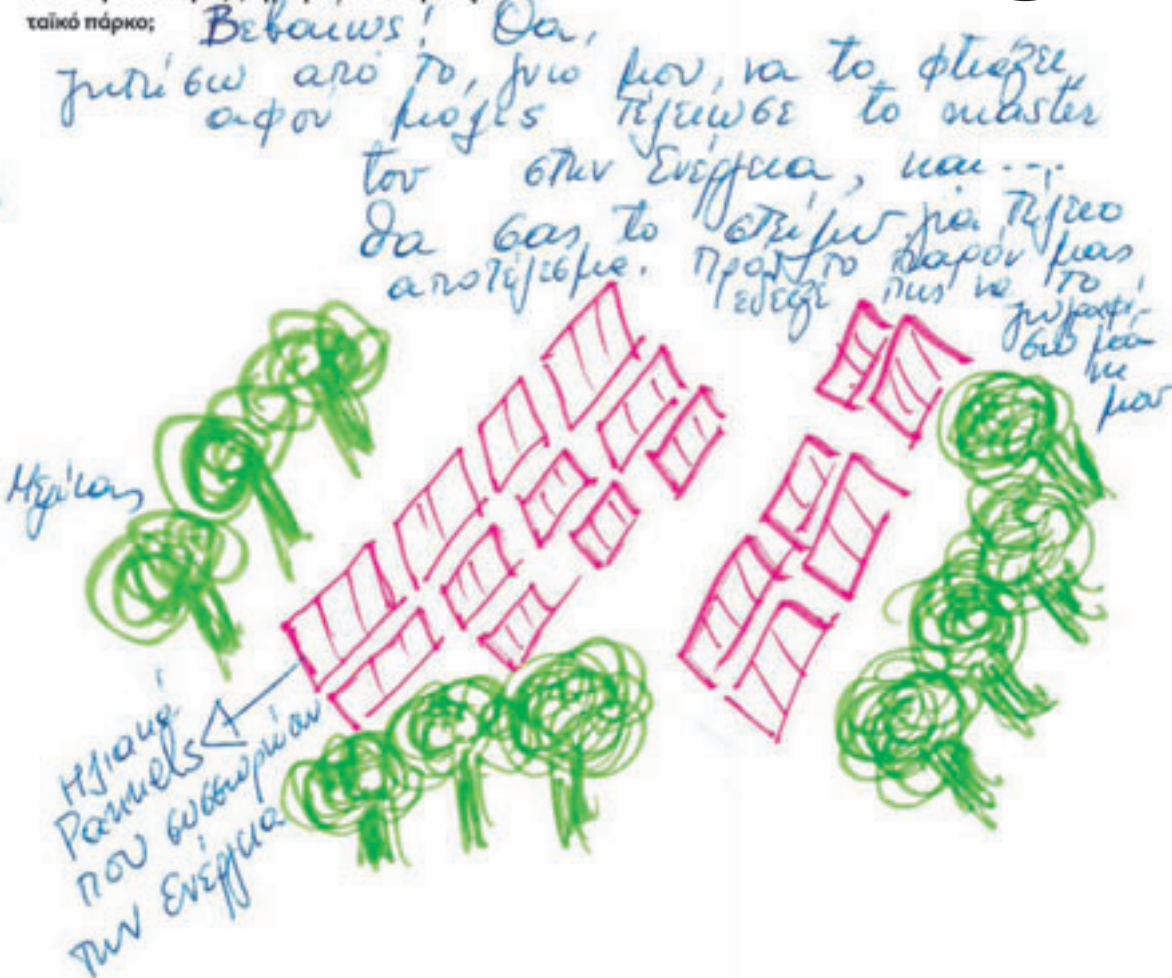 ταϊκό πάρκο;
Βεβαιως! Θα,
ζητήσω από το, γιο μου, να το φτιάξει
αφού μόλις τέλειωσε το master
του στην Ενέργεια, και....
θα σας το στείλω για τέλειο
αποτέλεσμα. Προς το παρόν μας
έδειξε πως να το
ζωγραφί-
σω μόνη
μου
Ηλιακά
Pannels
που συσσωρεύουν
την Ενέργεια